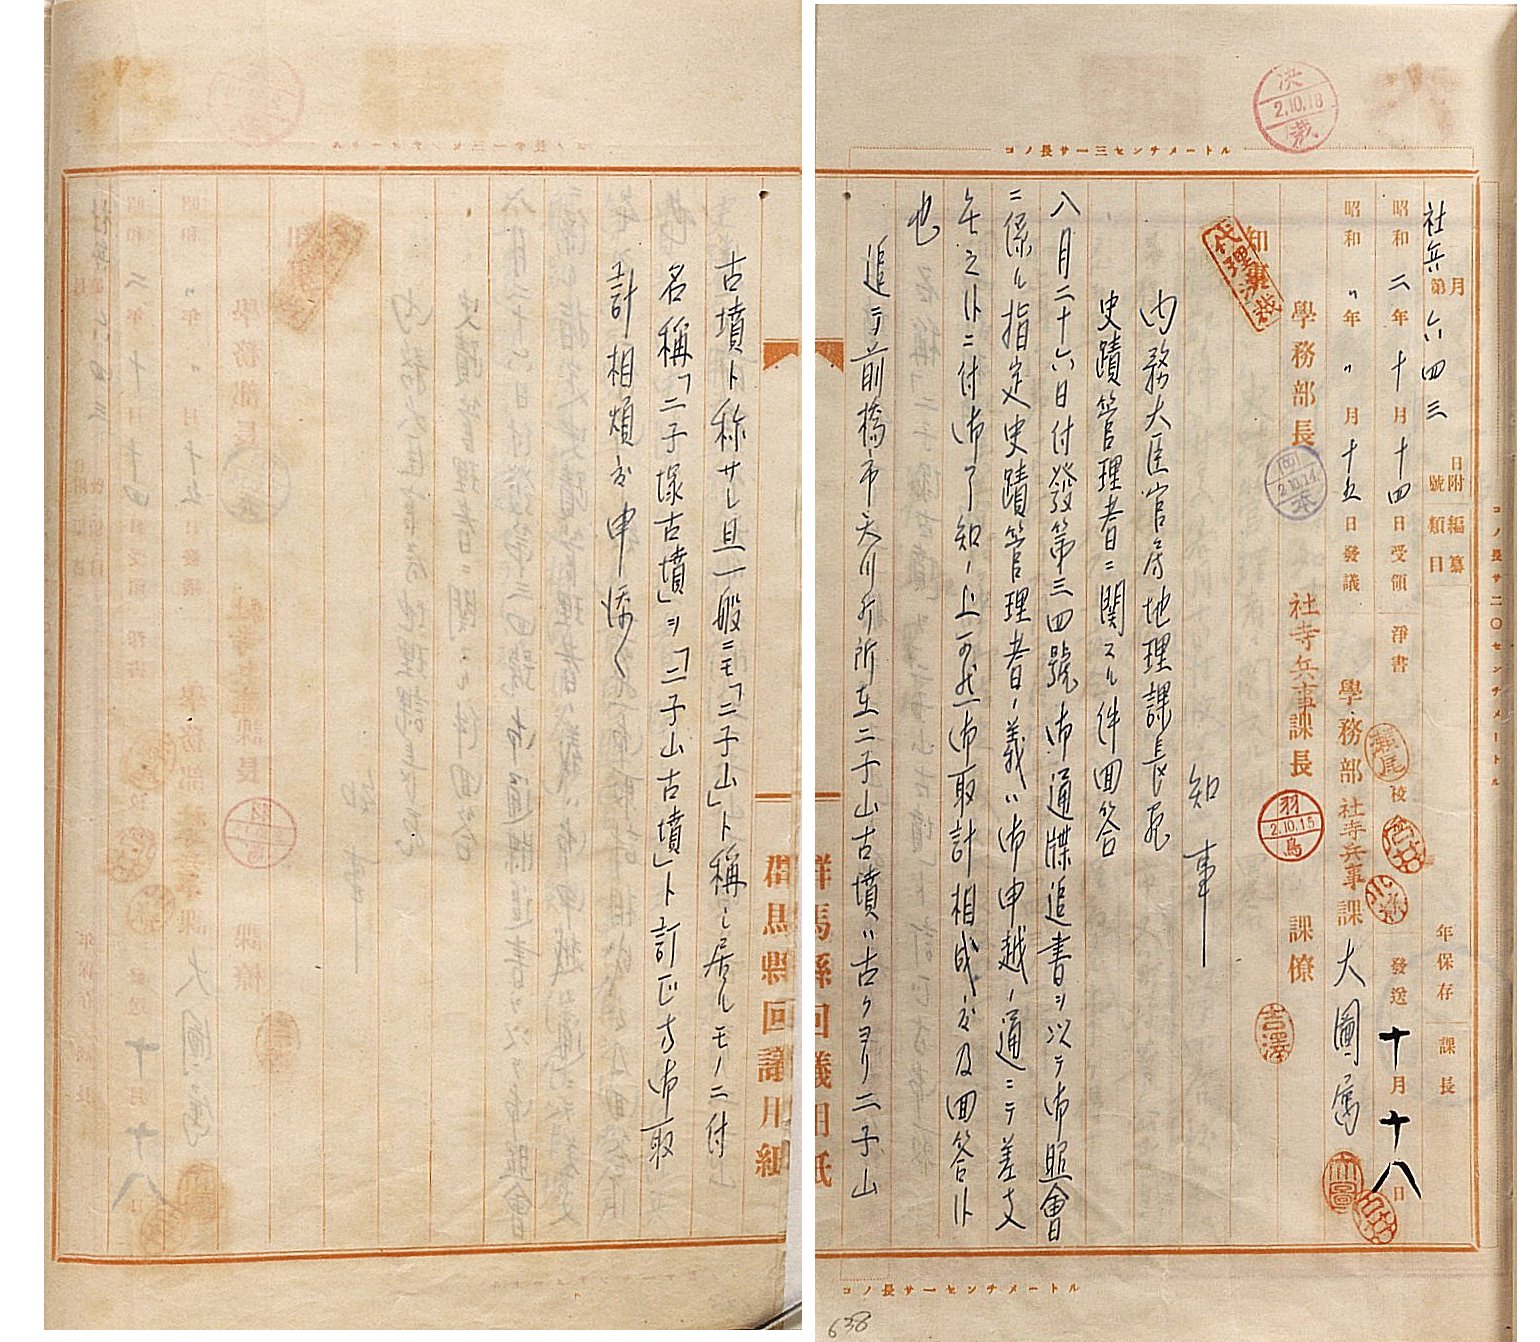 決裁 2.10.18
コノ長サ一三センチメートル
コノ長サ二〇センチメートル
月日附編纂 年保存 課長
社兵第六四三號類目
昭和二年十月十四日受領 淨書 瀬尾 校 發送 十月十八日
昭和〃年〃月十五日發議 學務部社寺兵事課 大圖属
學務部長 社寺兵事課長 羽鳥 2.10.15 課僚 吉澤
知事 代理済裁
知事
内務大臣官房地理課長宛
史蹟管理者ニ関スル件回答
八月二十六日付發第三四號御通牒追書ヲ以テ御照會
ニ係ル指定史蹟管理者ノ義ハ御申越ノ通ニテ差支
無之候ニ付御了知ノ上可然御取計相成度及回答候
也
追テ前橋市天川町所在二子山古墳ハ古クヨリ二子山
群馬縣回議用紙
古墳ト称サレ且一般ニモ「二子山」ト稱シ居ルモノニ付
名稱「二子塚古墳」ヲ「二子山古墳」ト訂正方御取
計相煩度申添候
コノ長サ一センチメートル
638